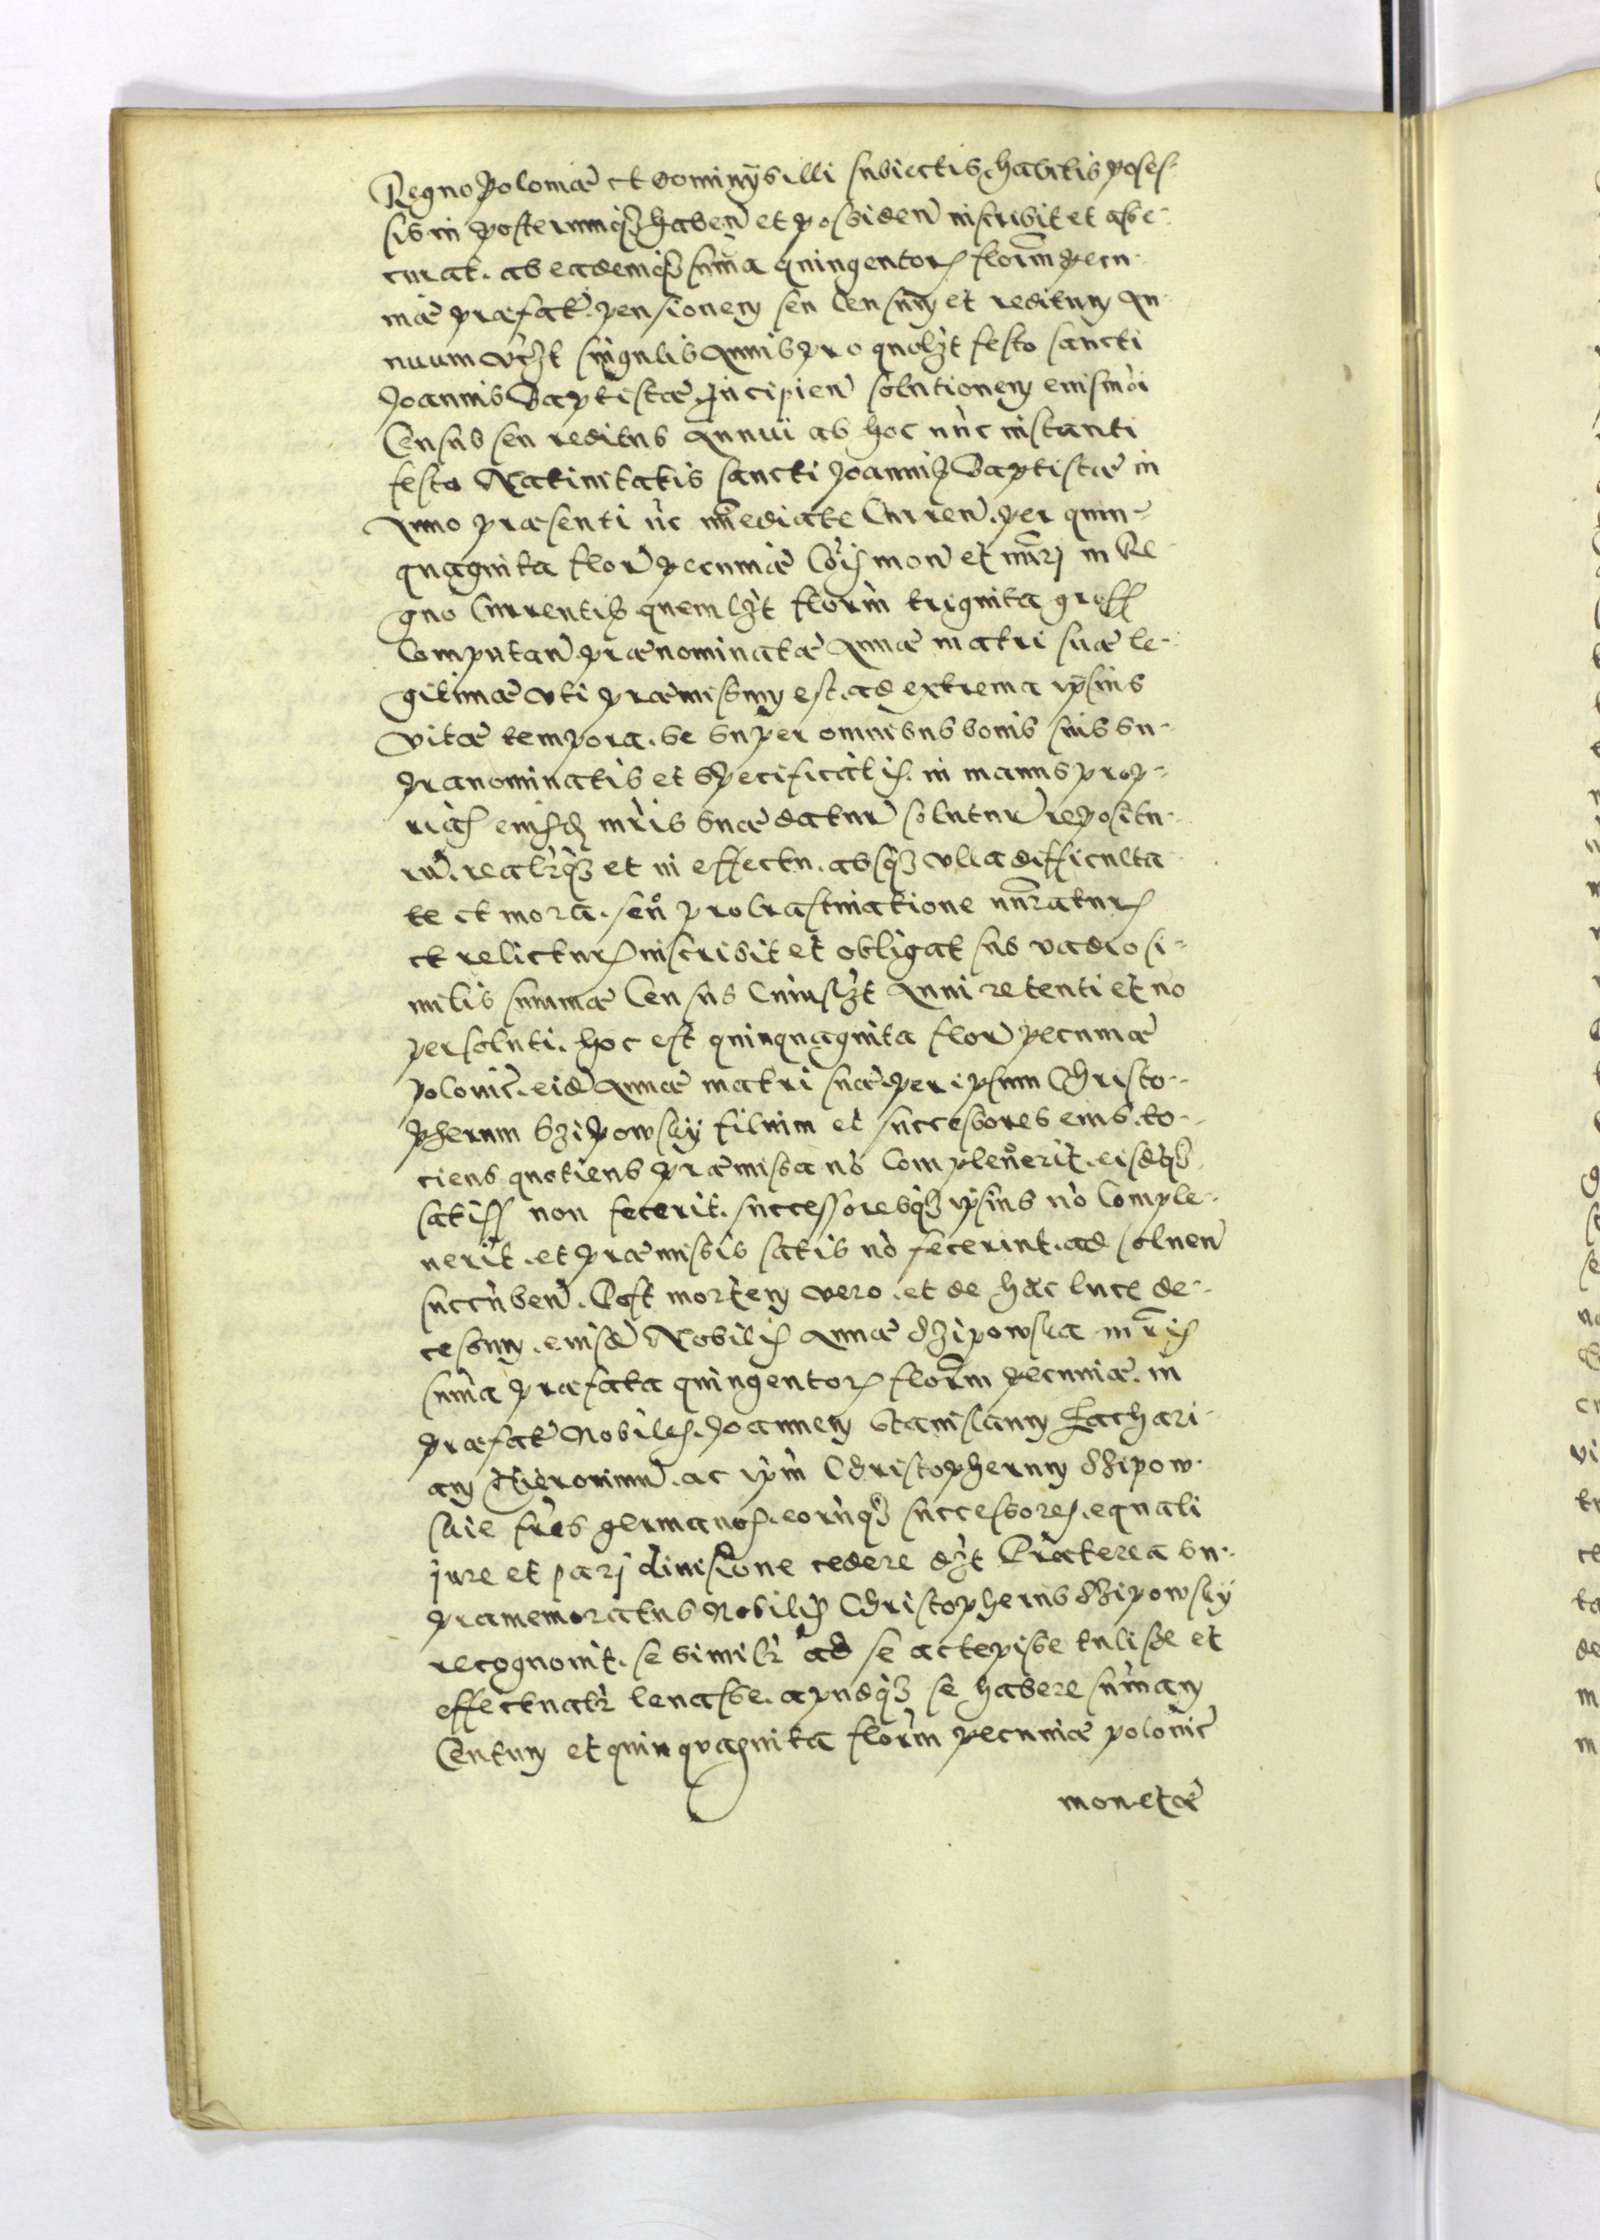 Regno Poloniæ et dominijs illi subiectis, habitis posses-
sis in posterumq́₃ haben̄ et possiden̄ inscribit et asse-
curat. ab eademq́₃ sum̄a quingentor̄ florēn pecu-
niæ præfat̄. pensionem seu Censum et reditum An-
nuum vt₃t singulis Annis pro quol₃t festo sancti
Joannis Baptistæ. Incipien̄ solutionem eiusmōi
Census seu reditus Annui ab hoc nūc instanti
festo Natiuitatis sancti Joannis Baptistæ in
Anno præsenti ūc im̄ediate Curren̄. per quin-
quaginta flor̄ pecuniæ Cōis mon̄ et nūri in Re-
gno Currentis quemli₃t florēn triginta gross
Computan̄. prænominatæ Annæ matri suæ le-
gitimæ vti præmissum est. ad extrema ipsius
vitæ tempora. se super omnibus bonis suis su-
pranominatis et specificatis. in manus prop-
rias eiusd̄ mr̄is suæ datur̄ solutur̄ repositu-
rū. realr̄q́₃ et in effectu. absq́₃ vlla difficulta
te et mora. seu procrastinatione nūraturū
et relicturū inscribit et obligat sub vadio si-
milis summæ Census Cuiusli₃t Anni retenti et nō
persoluti. hoc est quinquaginta flor̄ pecuniæ
polonic̄. eid̄ Annæ matri suæ. per ipsum Christo-
pherum Szipowsky filium et successores eius. to-
ciens quotiens præmissa nō Compleuerit. eisdēq́₃
satiss non fecerit. successoresq́₃ ipsius nō Comple-
uerīt. et præmissis satis nō fecerint. ad soluen̄
succūben̄. Post mortem vero. et de hac luce de-
cessum. eiusd̄ Nobilis Annæ Szipowska mr̄is
sum̄a præfata quingentor̄ florēn pecuniæ. in
præfat̄ Nobiles. Joannem Stanislaum Zachari-
am Hieronimū. ac ip̄m Christopherum Szipow-
skie fr̄es germanos. eorūq́₃ successores. equali
jure et parj diuisione cedere d₃t Præterea su-
pramemoratus Nobilis Christopherus Szipowsky
recognouit. se similr̄ ad se accepisse tulisse et
effectualr̄ leuasse. apudq́₃ se habere sum̄am
Centum et quinquaginta florēn pecuniæ polonic̄
monetæ